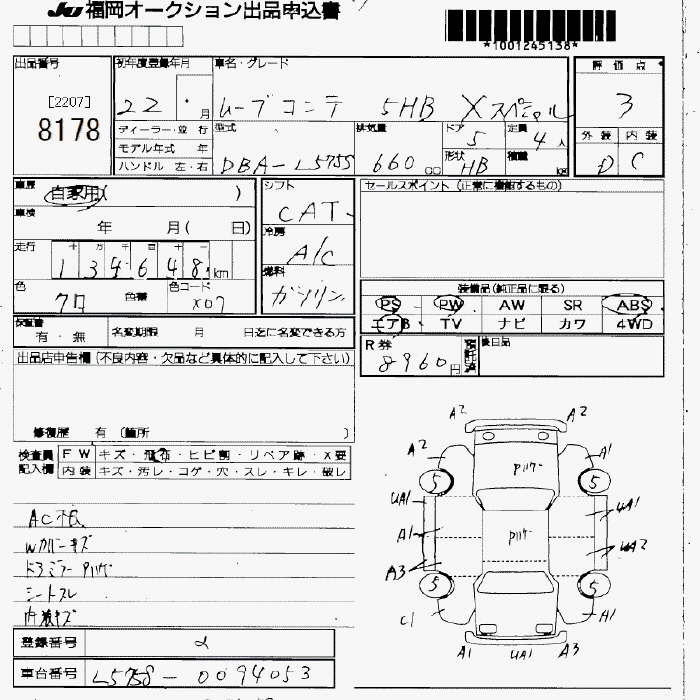 JU 福岡オークション出品申込書
*1001245138*
出品番号
[2207]
8178
初年度登録年月
22 . 月
ディーラー・並 行
モデル年式 年
ハンドル 左・右
車名・グレード
ムーブコンテ 5HB Xスペシャル
型式
DBA-L575S
排気量
660 cc
ドア
5
形状
HB
定員
4 人
積載
kg
評 価 点
3
外 装 内 装
D C
車歴
自家用( )
車検
年 月( 日)
走行
十 万 千 百 十 一
1 3 4 6 4 8 km
色
クロ 色替
色コード
X07
シフト
CAT
冷房
A/C
燃料
ガソリン
セールスポイント (正常に機能するもの)
装備品(純正品に限る)
PS PW AW SR ABS
エアB TV ナビ カワ 4WD
保証書
有 ・ 無
名変期限 月 日迄に名変できる方
R券
8960円
預託済
後日品
出品店申告欄 (不良内容・欠品など具体的に記入して下さい)
修復歴 有 (箇所 )
検査員
記入欄
FW キズ・飛石・ヒビ割・リペア跡・X要
内装 キズ・汚レ・コゲ・穴・スレ・キレ・破レ
AC不良
Wカバーキズ
ドアミラーハゲ
シートスレ
内装キズ
登録番号
車台番号 L575S-0094053
A2 A2
A2 A1
5 5
UA1 UA1
A1
UA2
A3
5 5
C1 A1
A1 UA1 A3